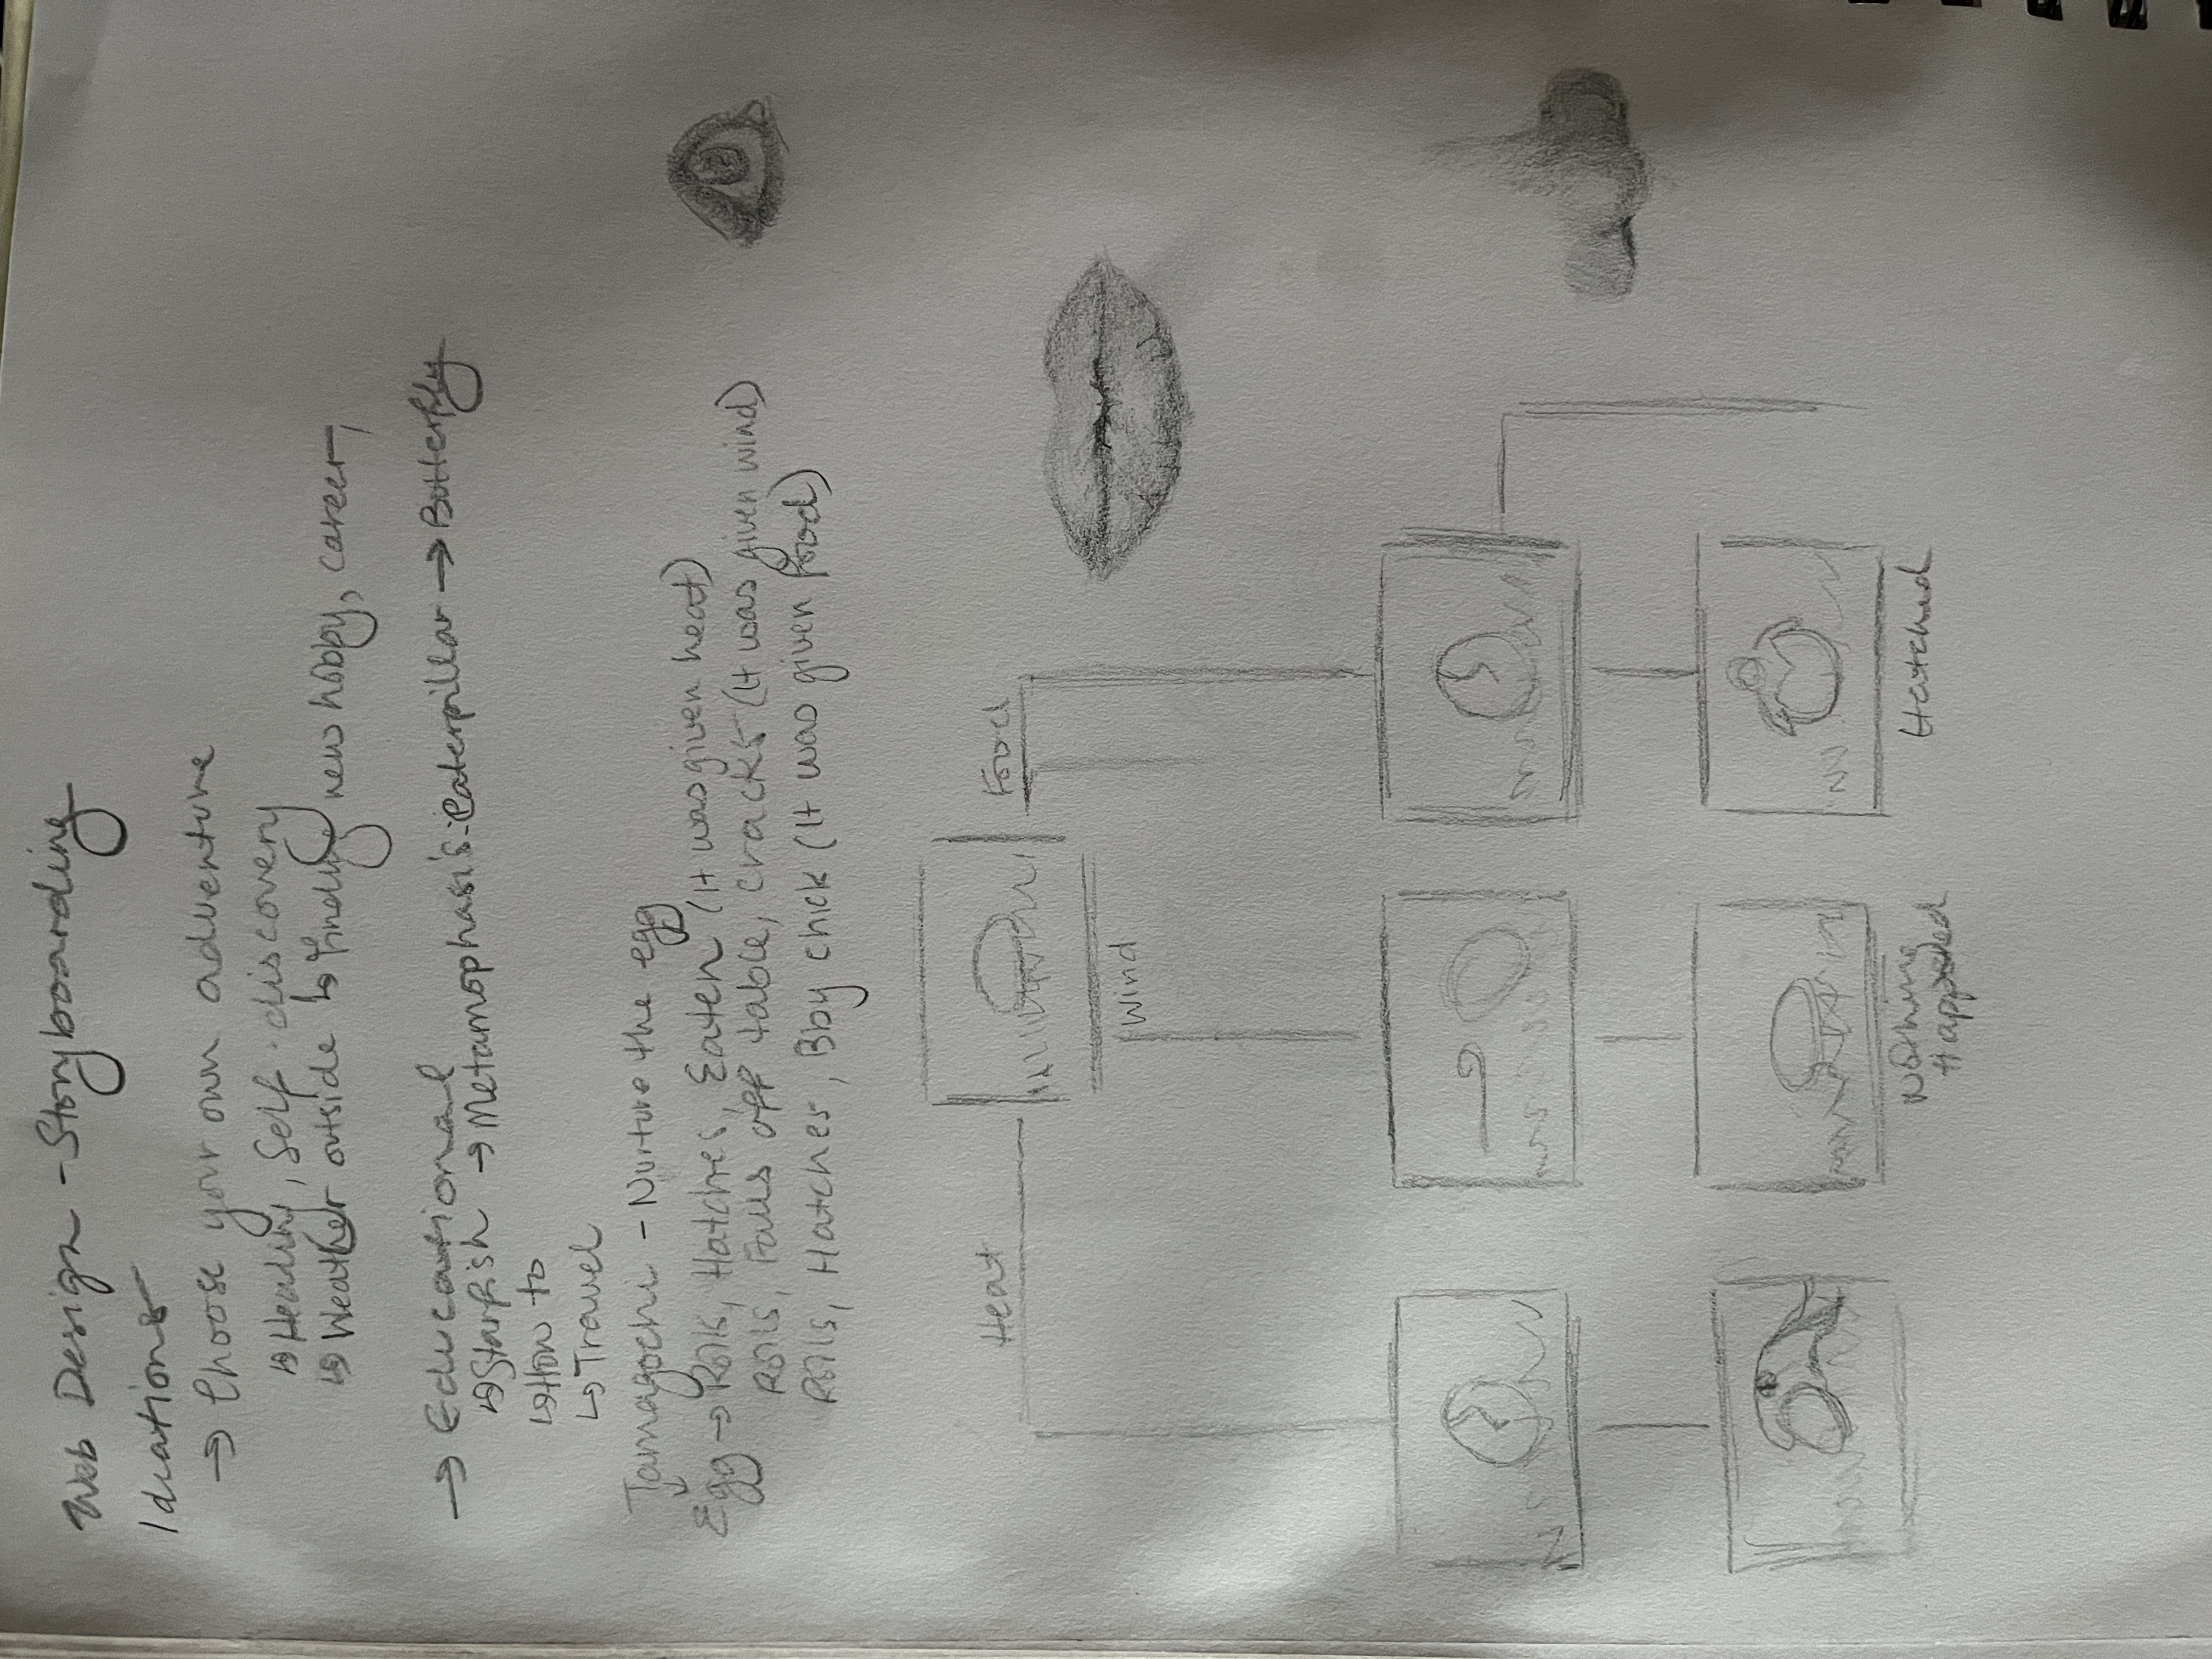 Web Design - Storyboarding
Ideations
→ Choose your own adventure
↳ Healing, Self-discovery
↳ Weather outside ↳ Finding new hobby, career,
→ Educational
↳ Starfish → Metamophasis: Caterpillar → Butterfly
↳ How to
↳ Travel
Tamagochi - Nurture the egg
Egg → Rolls, Hatches, Eaten (It was given heat)
Rolls, Falls off table, cracks (It was given wind)
Rolls, Hatches, Bby chick (It was given food)
Heat
Food
Wind
Nothing
Happened
Hatched